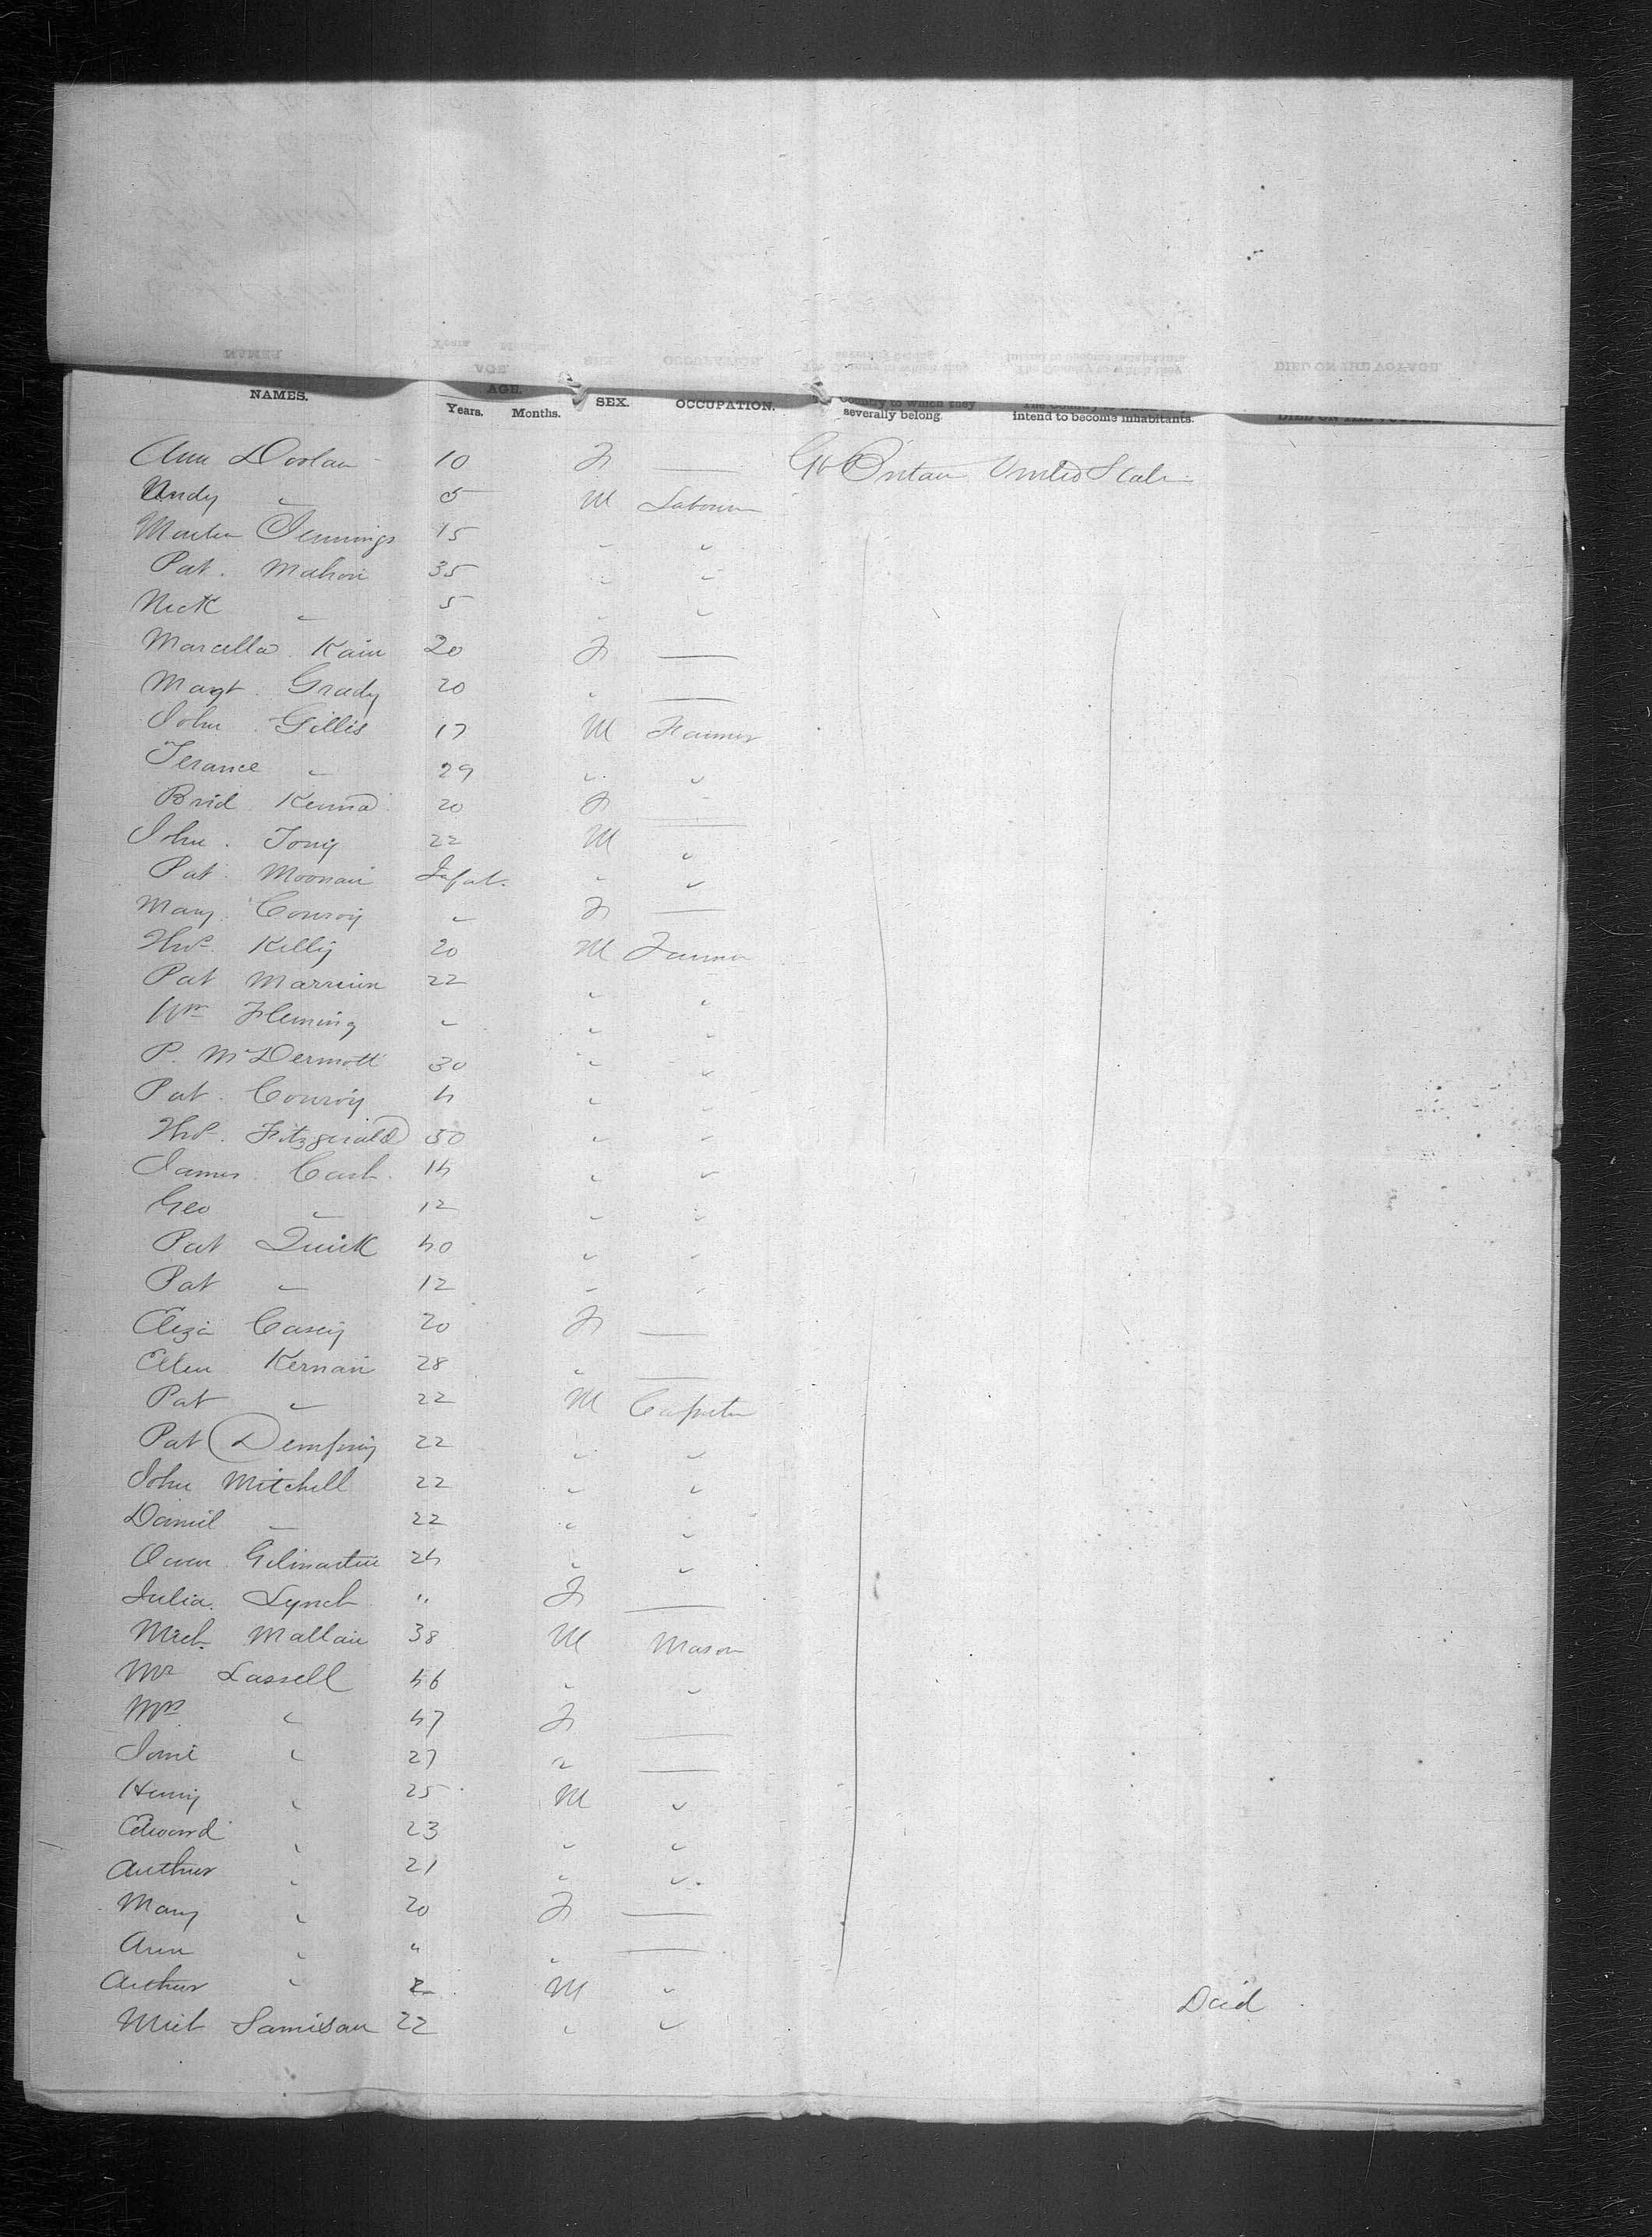 NAMES. AGE. Years. Months. SEX. OCCUPATION. Country to which they severally belong. intend to become inhabitants.
Ann Doolan 10 F — Gt Britain United States
Andy " 5 M Labourer
Martin Jennings 15 " "
Pat. Mahon 35 " "
Nick " 5 " "
Marcella Kain 20 F —
Margt. Grady 20 " —
John Gillis 17 M Farmer
Terance " 29 " "
Brid Kenna 20 F —
John. Tony 22 M "
Pat. Moonan Infat. " "
Mary Conroy " F —
Thos Killy 20 M Farmer
Pat 22 " "
Wm Fleming " " "
P. McDermott 30 " "
Pat. Conroy 4 " "
Thos. Fitzgerald 50 " "
James Cash 14 " "
Geo " 12 " "
Pat Quirk 40 " "
Pat " 12 " "
Eliza Casey 20 F —
Ellen Kernan 28 " —
Pat " 22 M Carpenter
Pat Dempsey 22 " "
John Mitchell 22 " "
Daniel " 22 " "
Owen Gilmartin 24 " "
Julia Lynch " F —
Mich. Mallan 38 M Mason
Mr Lassell 46 " "
Mrs " 47 F —
" 27 " —
Henry " 25 M "
Edward " 23 " "
Arthur " 21 " "
Mary " 20 F —
Ann " " " —
Arthur " M "
Mich 22 " " Died